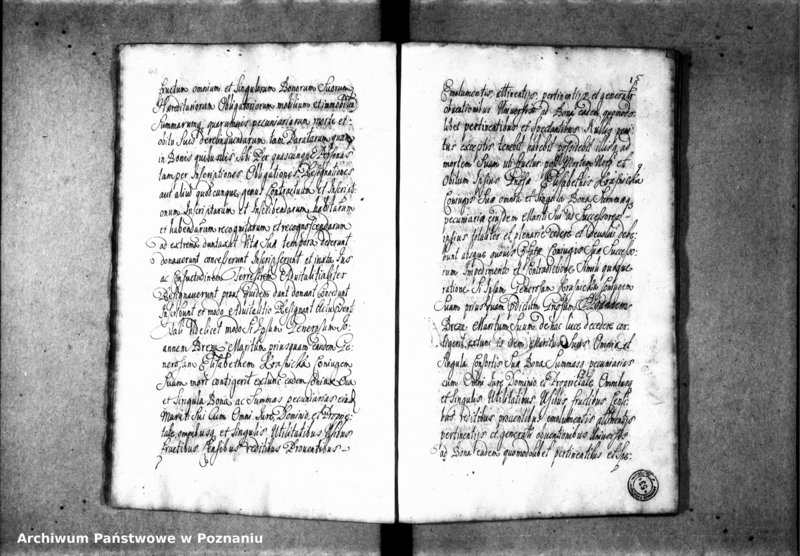 fructum omnium et Singulorum Bonorum Suorum
Hæreditariorum Obligatoriorum mobilium et immobilium
Summarumq quarumvis pecuniariarum morte et
obitu Suis derelinquendarum tam Paratarum quam
in Bonis quibusvis Sibi Per quascunque Personas
tam per Inscriptiones Obligationes Resignationes
aut alium quodcunque genus Contractuum et Inscripti
onum Inscriptarum et Inscribendarum habitarum
et habendarum recognitarum et recognoscendarum
ad extrema duntaxat Vitæ Suæ tempora dederunt
Donaverunt concesserunt Inscripserunt et iuxta Ius
ac Consuetudinem Terrestrem Advitalitialiter
Resignaverunt prout quidem dant donant Concedunt
Inscribunt et modo Advitalitio Resignant
Tali videlicet modo Si Ipsum Generosum Jo
annem Breza Maritum priusquam eandem Ge
nerosam Elisabetham Krasnicka Coniugem
Suam mori contigerit extunc eadem Omnia
et Singula Bona ac Summas pecuniarias eiusd
Mariti Sui Cum Omni Iure Dominio et Proprie
tate, omnibusq et Singulis Utilitatibus Usibus
fructibus Censibus reditibus Proventibus
15
Emolumentis attinentijs pertinentijs et generalr
obventionibus Universis ad Bona eadem quomodo
libet pertinentibus et Spectantibus Nullis peni
tus exceptis tenebit habebit possidebit illisq ad
mortem Suam uti fructur post Mortem Vero et
Obitum Ipsius Præfata Elisabethæ Krasnicka
Coniugis Suæ omnia et Singula Bona Summæq
pecuniariæ eiusdem Mariti Sui ad Successores
ipsius totaliter et plenarie cedere et Devolvi debe
bunt absque quovis Coniugis Suæ Successo
rum Impedimento et Contradictione Simili quoque
ratione Si Ipsam Generosam Krasnicka Coniugem
Suam prius quam Dictum Generosum Joannem
Breza Maritum Suum de hac luce decedere con
tigerit extunc is idem Maritus Suus Omnia et
Singula Consortis Suæ Bona Summasq pecuniarias
cum Omni Iure Dominio et Proprietate Omnibusq
et Singulis Utilitatibus Usibus fructibus Censi
bus reditibus proventibus emolumentis attinentijs
pertinentijs et generalr obventionibus Universis
ad Bona eadem quomodolibet pertinentibus et Spe
Archiwum Państwowe w Poznaniu